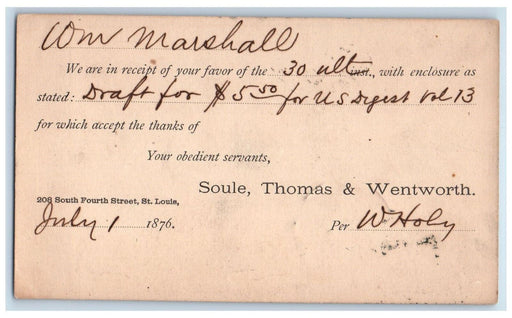 Wm Marshall
We are in receipt of your favor of the 30 ult inst., with enclosure as
stated: Draft for $5.50 for U S Digest Vol 13
for which accept the thanks of
Your obedient servants,
Soule, Thomas & Wentworth.
208 South Fourth Street, St. Louis,
July 1 1876.
Per W Hoby